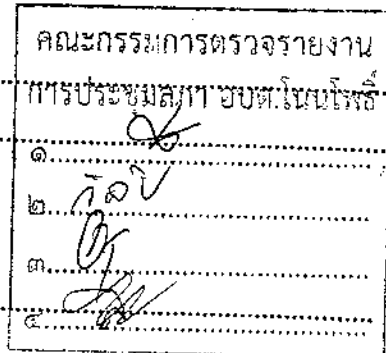 คณะกรรมการตรวจรายงาน
การประชุมสภา อบต.โนนโพธิ์
๑
๒
๓
๔